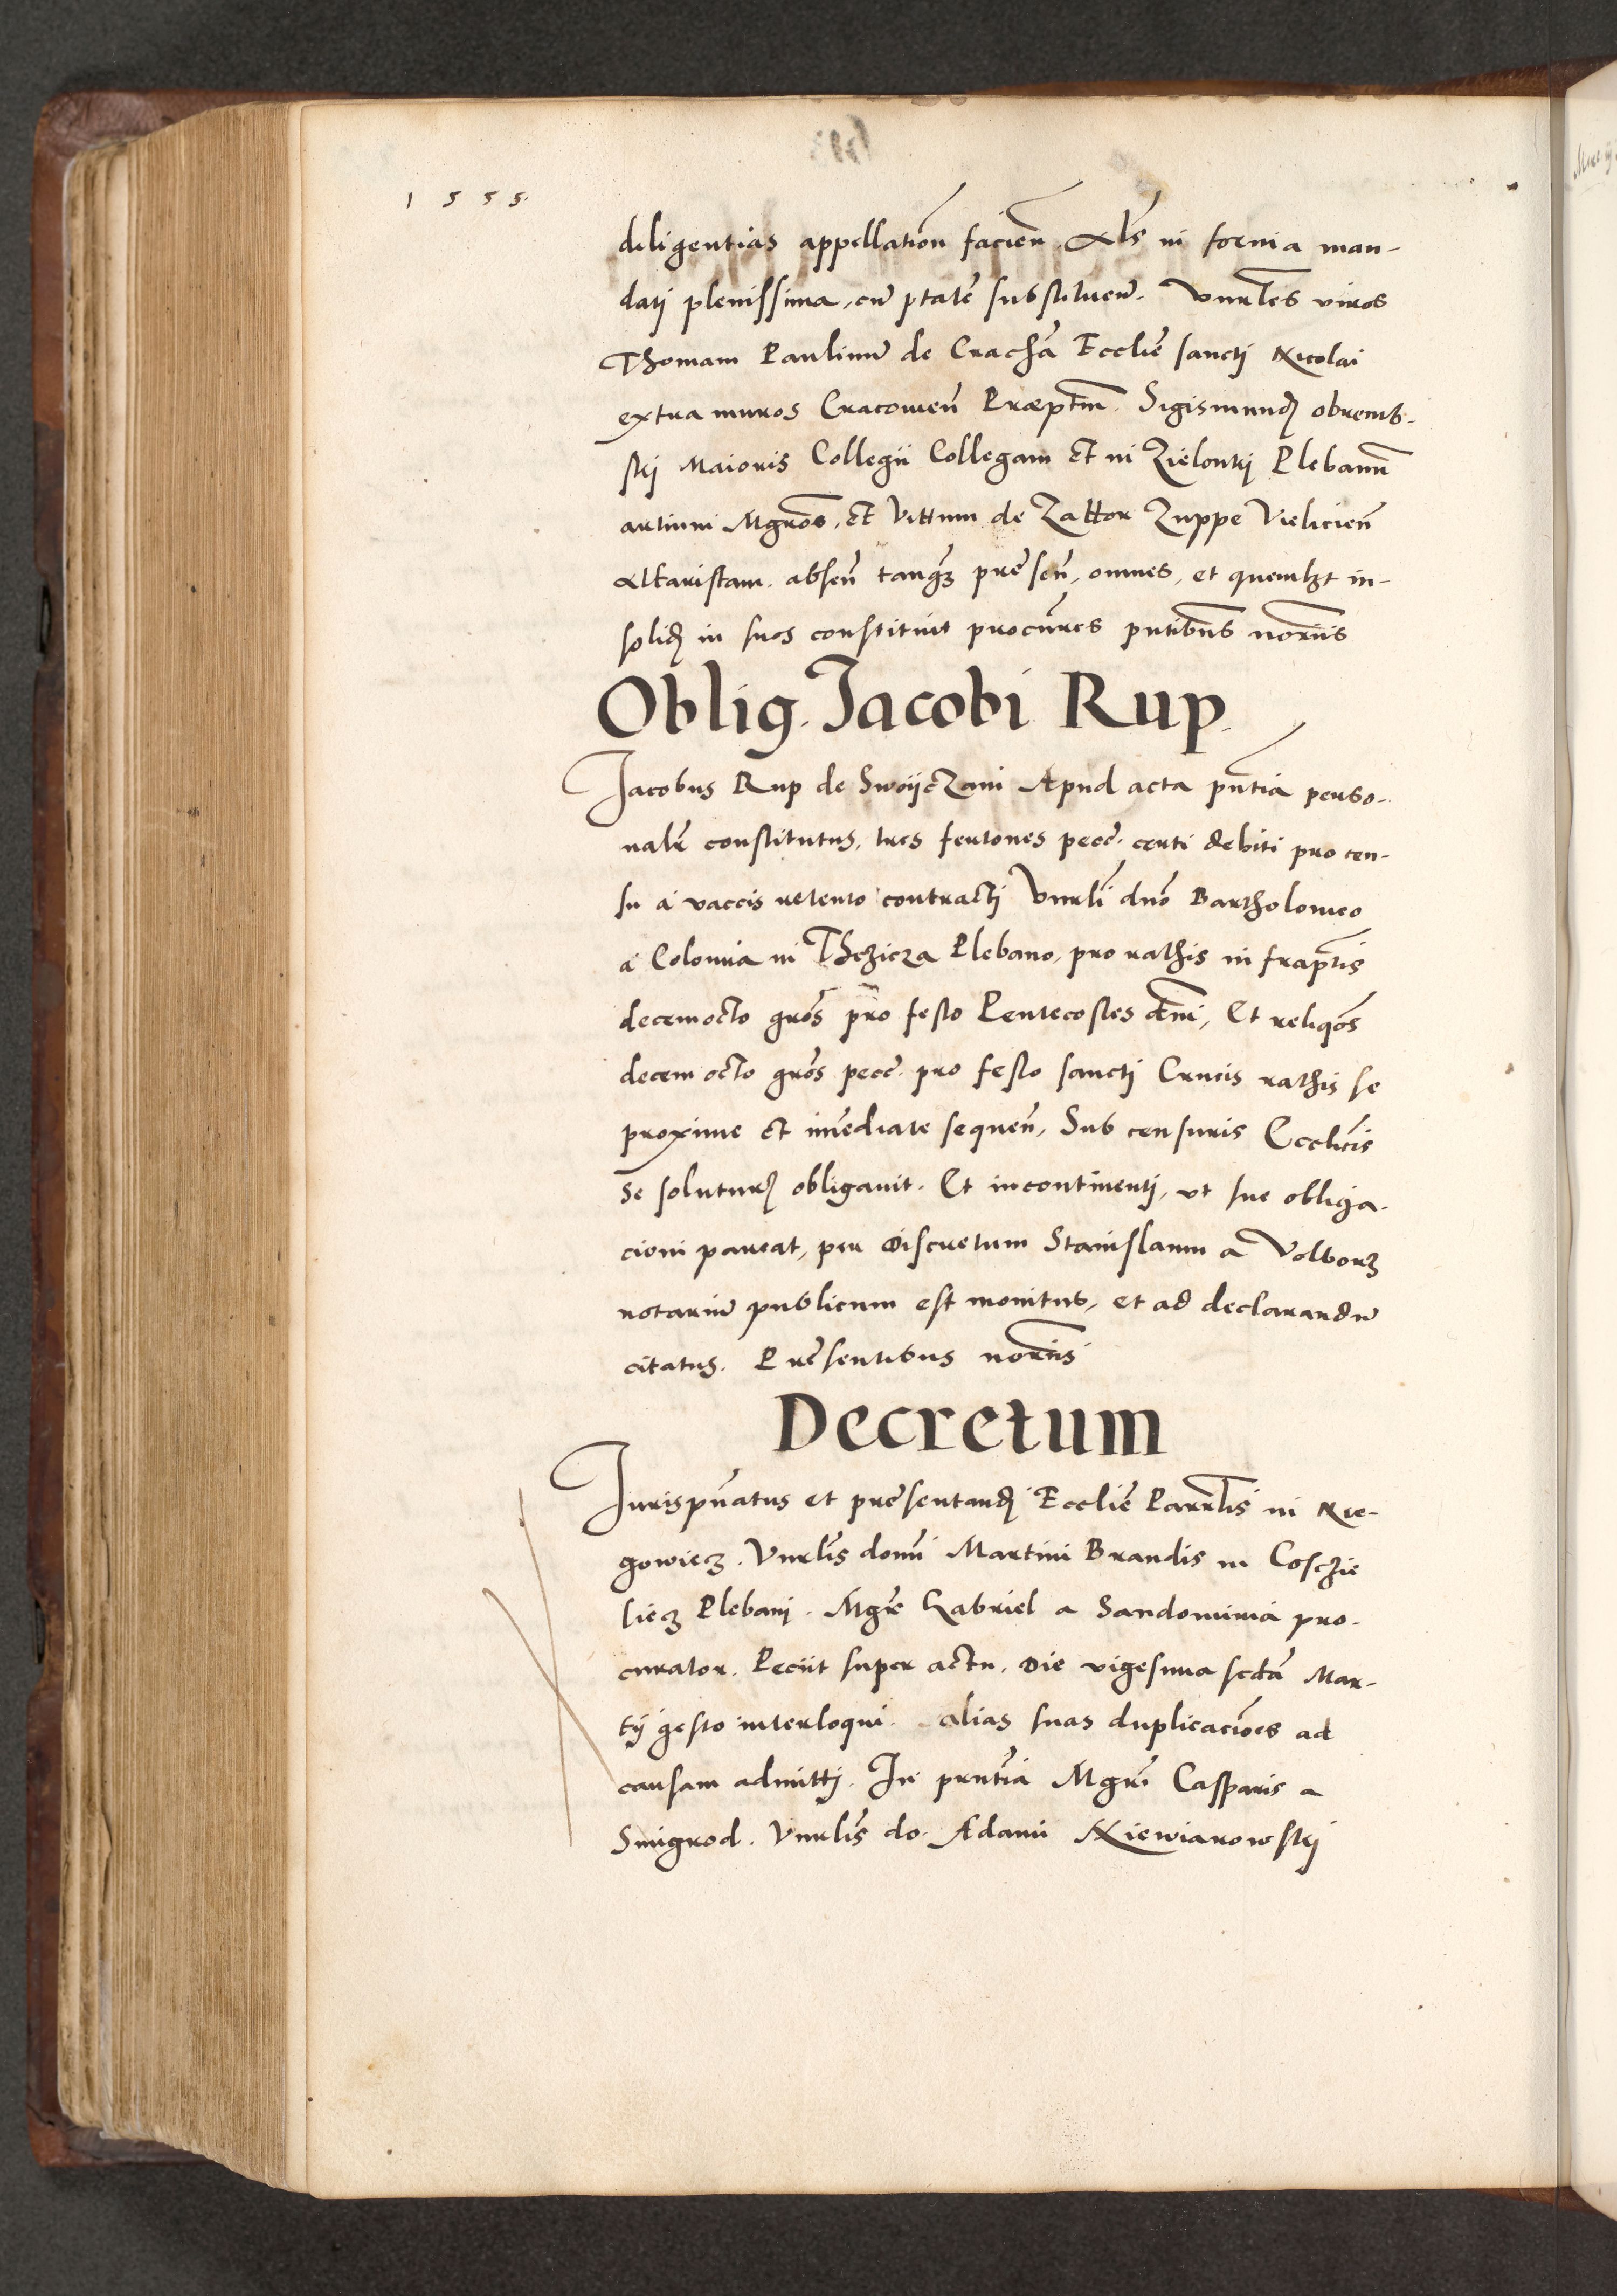 1555.
diligentias appellatioñ facieñ. Alŝ in forma man-
dati plenissima, cũ ptatẽ substituenḋ. Vnrĺes viros
Thomam Paulinũ de Crachã Eccliẽ sancti Nicolai
extra muros Cracovieñ Præptm̃. Sigismundḋ obremb-
ski Maioris Collegii Collegam et in Zielonki Plebanũ
artium Mgrõs, et Vittum de Zattor Zuppe Vielicieñ
Altaristam. absẽn tanq̃ȝ prẽsẽn, omnes, et quemlȝt in-
solidḋ in suos constituit procũres pntibũs norĩis
Oblig. Jacobi Rup.
Jacobus Rup de Swoijczani Apud acta pñtia perso-
nalr̃ constitutus, tres fertones pecc̃. certi debiti pro cen-
su a vaccis retento contracti Vnrlĩ dnõ Bartholomeo
a Colonia in Thczicza Plebano, pro rathis infrapt̃is
decemocto grõs pro festo Pentecostes dñi, Et reliqõs
decem octo grõs pecc̃. pro festo sancti Crucis rathis se
proxime et im̃ediate sequeñ, Sub censuris Ecclic̃is
se soluturḋ obligauit. Et incontinenti, vt sue obliga-
cioni pareat, per discretum Stanislaum a Volborȝ
notariũ publicum est monitus, et ad declarandũ
citatus. Prẽsentibus norĩis
Decretum
Jurispñatus et prẽsentandḋ Eccliẽ Parrlĩs in Nie-
gowiecȝ. Vnrlĩs domĩ Martini Brandis in Cosczie
liecȝ Plebani. Mgr̃ Gabriel a Sandomiria pro-
curator. Peciit super actu. die vigesima secdã Mar-
tij gesto interloqui. alias suas duplicaciões ad
causam admitti. In prntĩa Mgrĩ Casparis a
Smigrod. Vnrlĩs do. Adami Niewiarowski